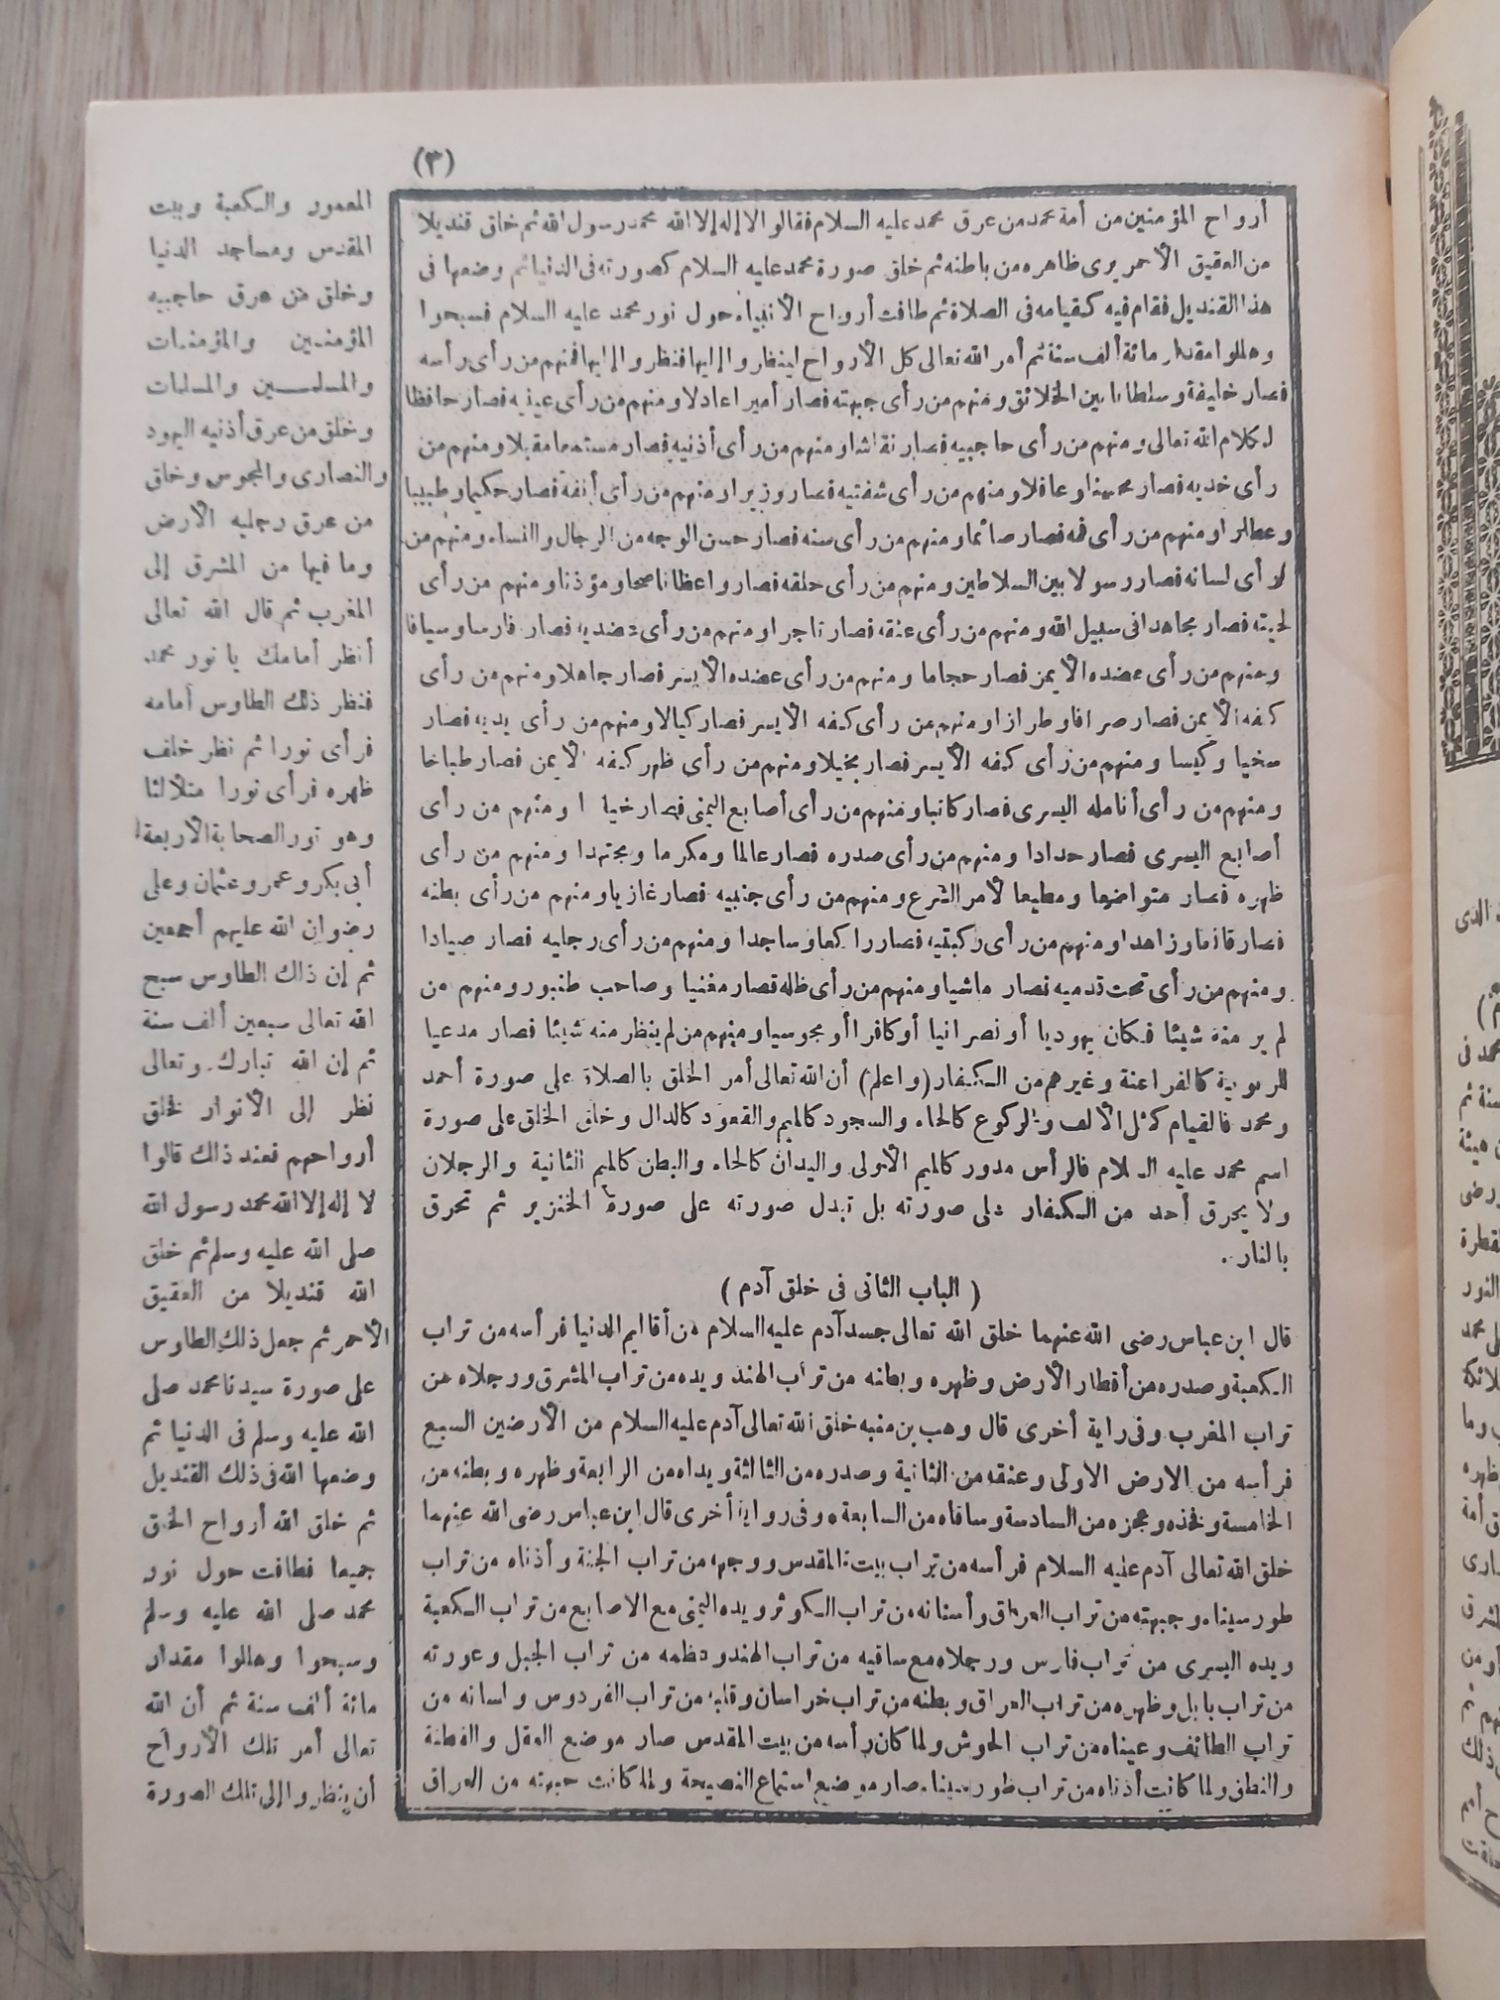 (٣)
أرواح المؤمنين من أمة محمد من عرق محمد عليه السلام فقالوا لا إله إلا الله محمد رسول الله ثم خلق قنديلا
من العقيق الأحمر يرى ظاهره من باطنه ثم خلق صورة محمد عليه السلام كصورته فى الدنيا ثم وضعها فى
هذا القنديل فقام فيه كقيامه فى الصلاة ثم طافت أرواح الأنبياء حول نور محمد عليه السلام فسبحوا
وهللوا مقدار مائة ألف سنة ثم أمر الله تعالى كل الأرواح لينظروا إليها فنظروا إليها فمنهم من رأى رأسه
فصار خليفة وسلطانا بين الخلائق ومنهم من رأى جبهته فصار أميرا عادلا ومنهم من رأى عينيه فصار حافظا
لكلام الله تعالى ومنهم من رأى حاجبيه فصار نقاشا ومنهم من رأى أذنيه فصار مستمعا مقبلا ومنهم من
رأى خديه فصار محسنا وعاقلا ومنهم من رأى شفتيه فصار وزيرا ومنهم من رأى أنفه فصار حكيما وطبيبا
وعطارا ومنهم من رأى فمه فصار صائما ومنهم من رأى سنه فصار حسن الوجه من الرجال والنساء ومنهم من
رأى لسانه فصار رسولا بين السلاطين ومنهم من رأى حلقه فصار واعظا ناصحا ومؤذنا ومنهم من رأى
لحيته فصار مجاهدا فى سبيل الله ومنهم من رأى عنقه فصار تاجرا ومنهم من رأى عضديه فصار فارسا وسيافا
ومنهم من رأى عضده الأيمن فصار حجاما ومنهم من رأى عضده الأيسر فصار جاهلا ومنهم من رأى
كفه الأيمن فصار صرافا وطرازا ومنهم من رأى كفه الأيسر فصار كيالا ومنهم من رأى يديه فصار
سخيا وكيسا ومنهم من رأى كفه الأيسر فصار بخيلا ومنهم من رأى ظهر كفه الأيمن فصار طباخا
ومنهم من رأى أنامله اليسرى فصار كاتبا ومنهم من رأى أصابع اليمنى فصار ومنهم من رأى
أصابع اليسرى فصار حدادا ومنهم من رأى صدره فصار عالما ومكرما ومجتهدا ومنهم من رأى
ظهره فصار متواضعا ومطيعا لأمر الشرع ومنهم من رأى جنبيه فصار غازيا ومنهم من رأى بطنه
فصار قانعا وزاهدا ومنهم من رأى ركبتيه فصار راكعا وساجدا ومنهم من رأى رجليه فصار صيادا
ومنهم من رأى تحت قدميه فصار ماشيا ومنهم من رأى ظله فصار مغنيا وصاحب طنبور ومنهم من
لم ير منه شيئا فكان يهوديا أو نصرانيا أو كافرا أو مجوسيا ومنهم من لم ينظر منه شيئا فصار مدعيا
للربوبية كالفراعنة وغيرهم من الكفار (واعلم) أن الله تعالى أمر الخلق بالصلاة على صورة أحمد
ومحمد فالقيام كمثل الألف والركوع كالحاء والسجود كالميم والقعود كالدال وخلق الخلق على صورة
اسم محمد عليه السلام فالرأس مدور كالميم الأولى واليدان كالحاء والبطن كالميم الثانية والرجلان
ولا يحرق أحد من الكفار على صورته بل تبدل صورته على صورة الخنزير ثم تحرق
بالنار.
( الباب الثانى فى خلق آدم )
قال ابن عباس رضى الله عنهما خلق الله تعالى جسد آدم عليه السلام من أقاليم الدنيا فرأسه من تراب
الكعبة وصدره من أقطار الأرض وظهره وبطنه من تراب الهند ويده من تراب المشرق ورجلاه من
تراب المغرب وفى راية أخرى قال وهب بن منبه خلق الله تعالى آدم عليه السلام من الأرضين السبع
فرأسه من الارض الاولى وعنقه من الثانية وصدره من الثالثة ويداه من الرابعة وظهره وبطنه من
الخامسة وفخذه وعجزه من السادسة وساقاه من السابعة، وفى رواية أخرى قال ابن عباس رضى الله عنهما
خلق الله تعالى آدم عليه السلام فرأسه من تراب بيت المقدس ووجهه من تراب الجنة وأذناه من تراب
طور سيناء وجبهته من تراب العراق وأسنانه من تراب الكوثر ويده اليمنى مع الاصابع من تراب الكعبة
ويده اليسرى من تراب فارس ورجلاه مع ساقيه من تراب الهند وعظمه من تراب الجبل وعورته
من تراب بابل وظهره من تراب العراق وبطنه من تراب خراسان وقلبه من تراب الفردوس ولسانه من
تراب الطائف وعيناه من تراب الحوش ولما كان رأسه من بيت المقدس صار موضع العقل والفطنة
والنطق ولما كانت أذناه من تراب طور سيناء صار موضع استماع النصيحة ولما كانت جبهته من العراق
المعمور والكعبة وبيت
المقدس ومساجد الدنيا
وخلق من عرق حاجبيه
المؤمنين والمؤمنات
والمسلمين والمسلمات
وخلق من عرق أذنيه اليهود
والنصارى والمجوس وخلق
من عرق رجليه الأرض
وما فيها من المشرق إلى
المغرب ثم قال الله تعالى
أنظر أمامك يا نور محمد
فنظر ذلك الطاوس أمامه
فرأى نورا ثم نظر خلف
ظهره فرأى نورا متلألئا
وهو نور الصحابة الأربعة
أبى بكر وعمر وعثمان وعلى
رضوان الله عليهم أجمعين
ثم إن ذلك الطاوس سبح
الله تعالى سبعين ألف سنة
ثم إن الله تبارك وتعالى
نظر إلى الأنوار فخلق
أرواحهم فعند ذلك قالوا
لا إله إلا الله محمد رسول الله
صلى الله عليه وسلم ثم خلق
الله قنديلا من العقيق
الأحمر ثم جعل ذلك الطاوس
على صورة سيدنا محمد صلى
الله عليه وسلم فى الدنيا ثم
وضعها الله فى ذلك القنديل
ثم خلق الله أرواح الخلق
جميعا فطافت حول نور
محمد صلى الله عليه وسلم
وسبحوا وهللوا مقدار
مائة ألف سنة ثم أن الله
تعالى أمر تلك الأرواح
أن ينظروا إلى تلك الصورة